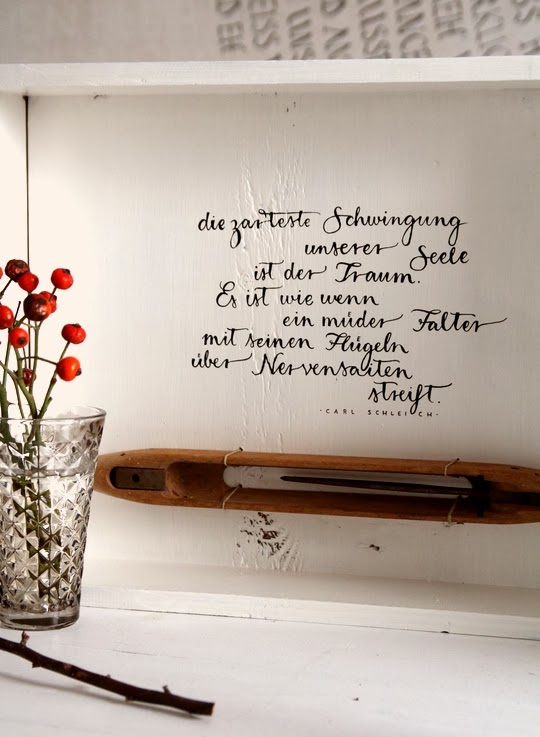 die zarteste Schwingung
unserer Seele
ist der Traum.
Es ist wie wenn
ein müder Falter
mit seinen Flügeln
über Nervensaiten
streift.
· CARL SCHLEICH ·